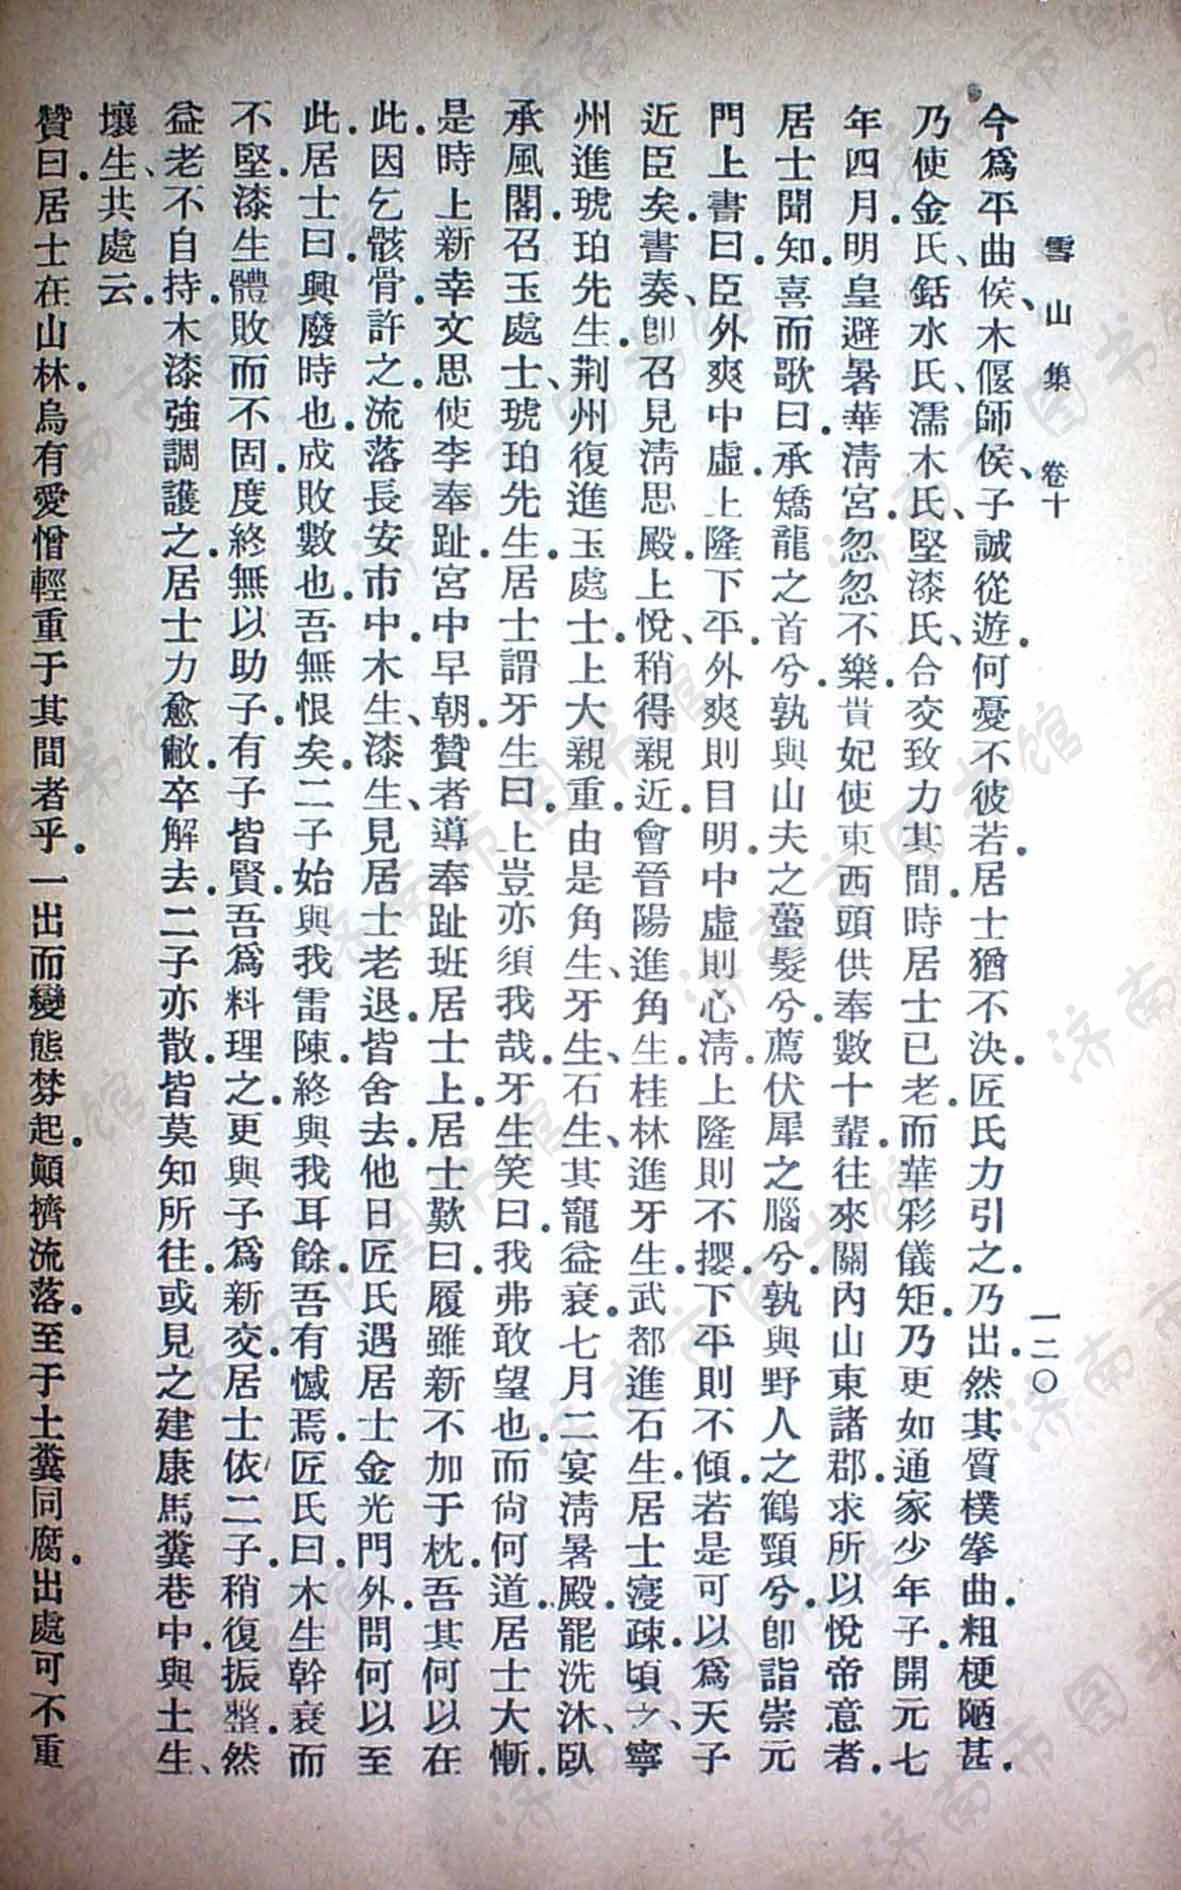 雪山集 卷十 一二〇
今爲平曲侯、木偃師侯、子誠從遊。何憂不彼若。居士猶不決。匠氏力引之。乃出。然其質樸拳曲。粗梗陋甚。
乃使金氏、銛水氏、濡木氏、堅漆氏、合交致力其間。時居士已老。而華彩儀矩。乃更如通家少年子。開元七
年四月。明皇避暑華清宮。忽忽不樂。貴妃使東西頭供奉數十輩。往來關內山東諸郡。求所以悅帝意者。
居士聞知。喜而歌曰。承矯龍之首兮。孰與山夫之蠆髮兮。薦伏犀之腦兮。孰與野人之鶴頸兮。卽詣崇元
門上書曰。臣外爽中虛。上隆下平。外爽則目明。中虛則心清。上隆則不攖。下平則不傾。若是可以爲天子
近臣矣。書奏、卽召見清思殿。上悅、稍得親近。會晉陽進角生。桂林進牙生。武都進石生。居士寖疎。頃之、寧
州進琥珀先生。荆州復進玉處士。上大親重。由是角生、牙生、石生、其寵益衰。七月二宴清暑殿。罷洗沐、臥
承風閣。召玉處士、琥珀先生。居士謂牙生曰。上豈亦須我哉。牙生笑曰。我弗敢望也。而尙何道。居士大慚。
是時上新幸文思使李奉趾。宮中早朝。贊者導奉趾班居士上。居士歎曰。履雖新不加于枕。吾其何以在
此。因乞骸骨。許之。流落長安市中。木生、漆生、見居士老退。皆舍去。他日匠氏遇居士金光門外。問何以至
此。居士曰。興廢時也。成敗數也。吾無恨矣。二子始與我雷陳。終與我耳餘。吾有憾焉。匠氏曰。木生幹衰而
不堅。漆生體敗而不固。度終無以助子。有子皆賢。吾爲料理之。更與子爲新交。居士依二子。稍復振整。然
益老不自持。木漆強調護之。居士力愈敝。卒解去。二子亦散。皆莫知所往。或見之建康馬糞巷中。與土生、
壤生、共處云。
贊曰。居士在山林。烏有愛憎輕重于其間者乎。一出而變態棼起。顚擠流落。至于土糞同腐。出處可不重